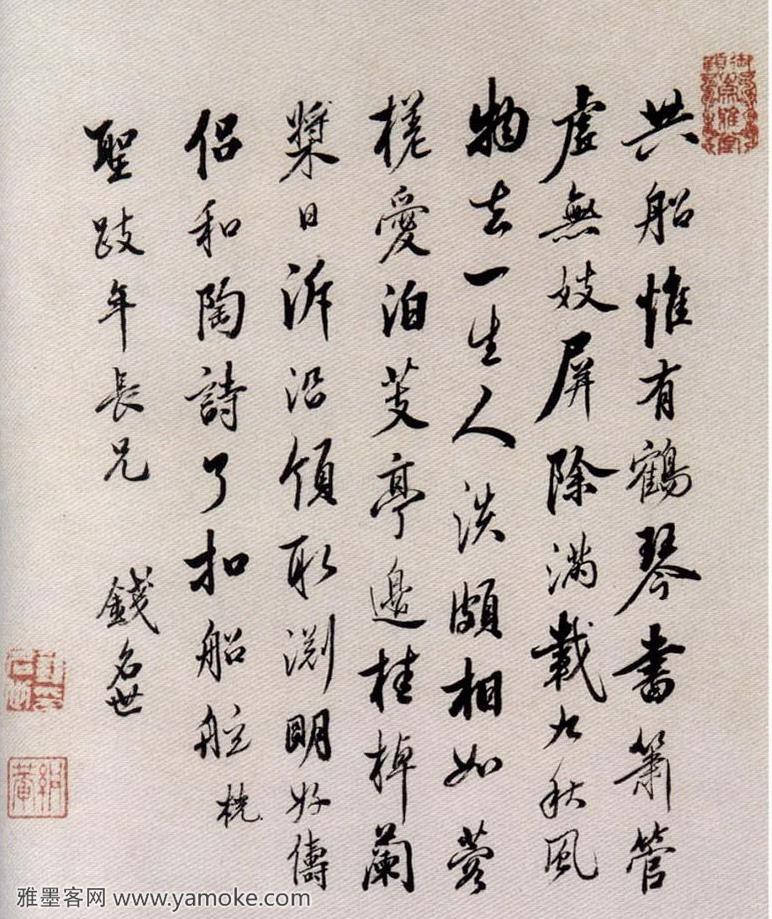 共船惟有鶴琴書簫管
虛無妓屏除滿載九秋風
物去一生人淡頗相如
槎愛泊芰亭邊桂棹蘭
槳日泝沿領取淵明好儔
侶和陶詩了扣船舷
聖跂年長兄 錢名世
雅墨客网 www.yamoke.com